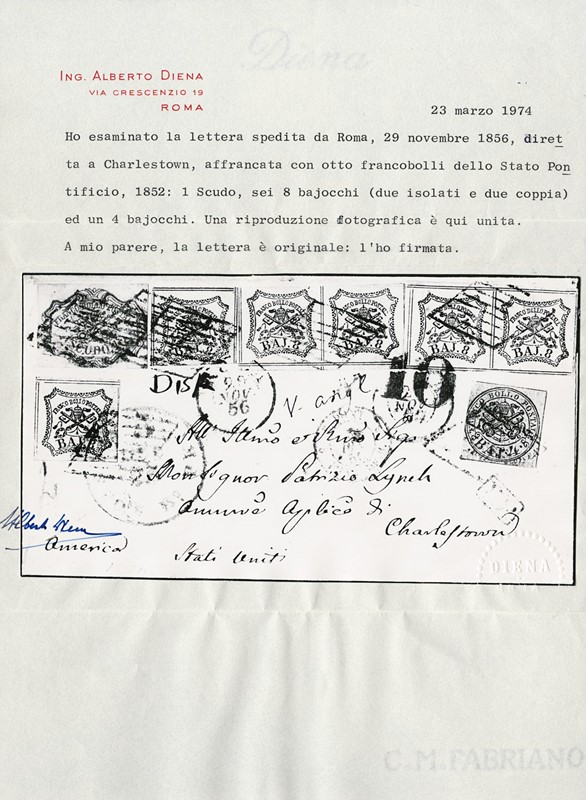 Diena
ING. ALBERTO DIENA
VIA CRESCENZIO 19
ROMA
23 marzo 1974
Ho esaminato la lettera spedita da Roma, 29 novembre 1856, diret
ta a Charlestown, affrancata con otto francobolli dello Stato Pon
tificio, 1852: 1 Scudo, sei 8 bajocchi (due isolati e due coppia)
ed un 4 bajocchi. Una riproduzione fotografica è qui unita.
A mio parere, la lettera è originale: l'ho firmata.
BAJ. 8. BAJ. 8. BAJ. 8. BAJ. 8.
NOV
56
V. angl.
10
BAJ
All' Illmo e Rmo Sig
Monsignor Patrizio Lynch
Aplico di
Charlestown
America
Stati Uniti
DIENA
C.M.FABRIANO